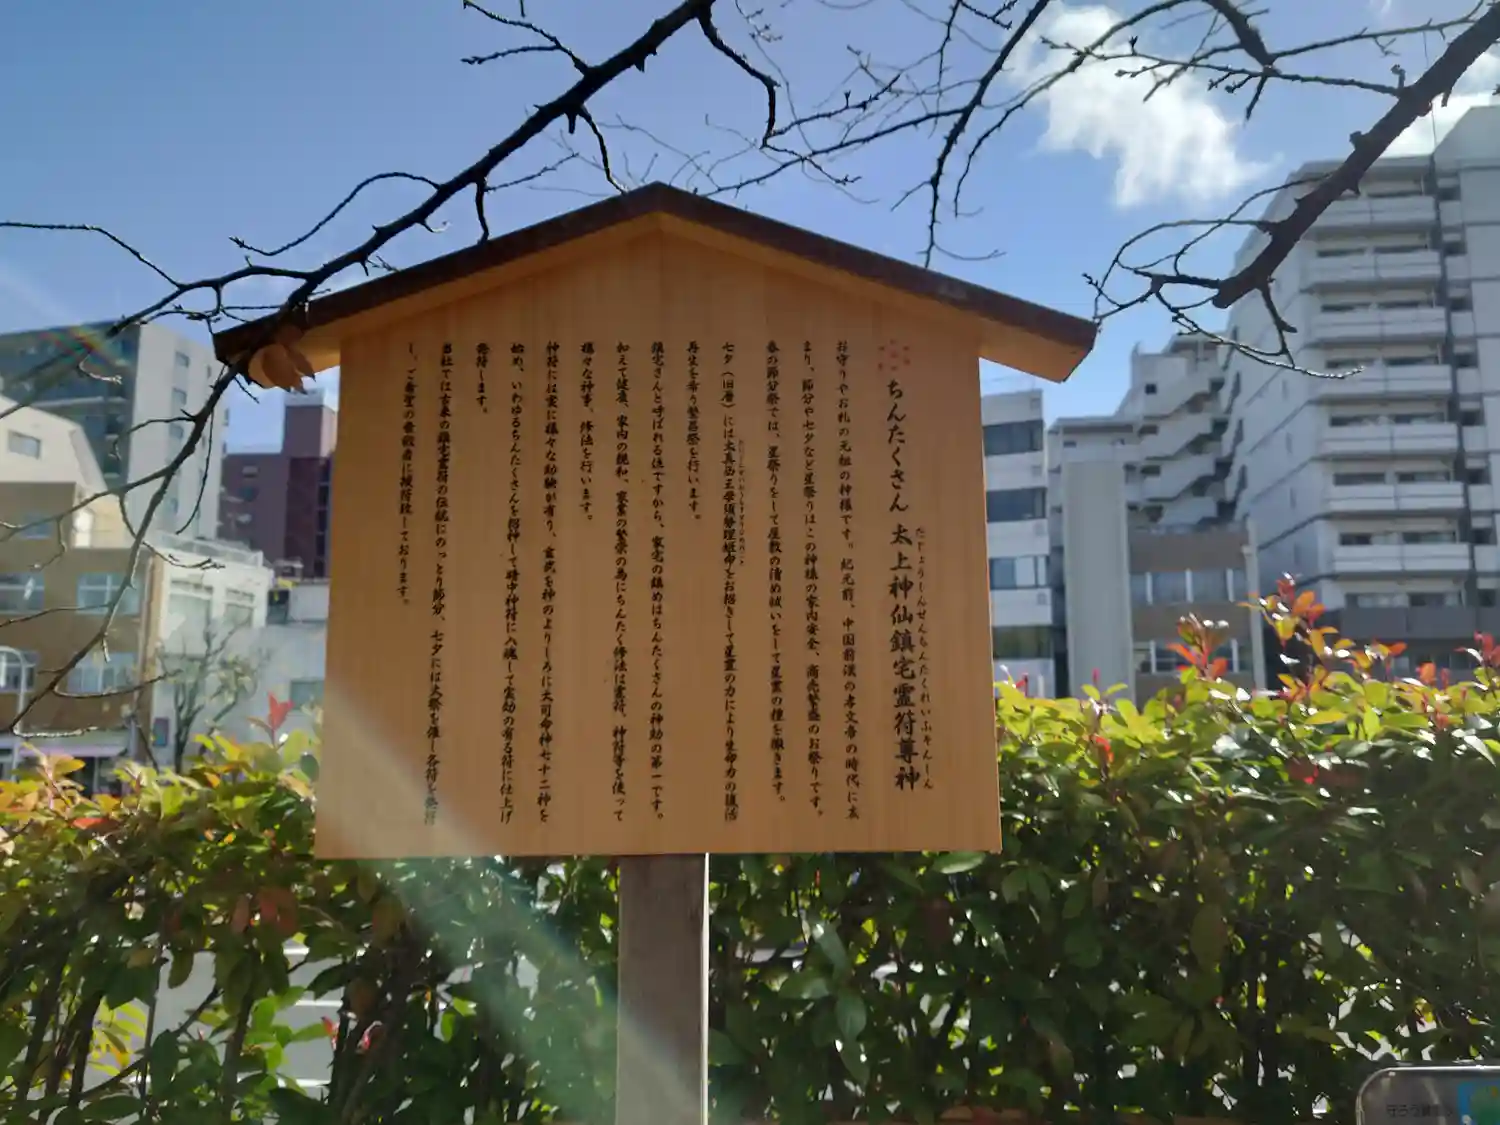 ちんたくさん 太上神仙鎮宅霊符尊神
たじょうしんぜんちんたくれいふそんしん
お守りやお札の元祖の神様です。紀元前、中国前漢の孝文帝の時代に太
まり、節分や七夕など星祭りはこの神様の家内安全、商売繁盛のお祭りです。
春の節分祭では、星祭りをして屋敷の清め祓いをして星業の種を撒きます。
七夕(旧暦)には太真西王母須勢理姫命とお招きして星霊の力により生命力の復活
再生を希り繁昌祭を行います。
鎮宅さんと呼ばれる位ですから、家宅の鎮めはちんたくさんの神助の第一です。
加えて健康、家内の親和、家業の繁栄の為にちんたく修法は霊符、神符等を使って
様々な神事、修法を行います。
神符には実に様々な助験が有り、玄武を神のよりしろに大司命神七十二神を
始め、いわゆるちんたくさんを招神して暗中神符に入魂して実効の有る符に仕上げ
発符します。
当社では古来の鎮宅霊符の伝統にのっとり節分、七夕には大祭を催し各符を発符
し、ご希望の崇敬者に授符致しております。